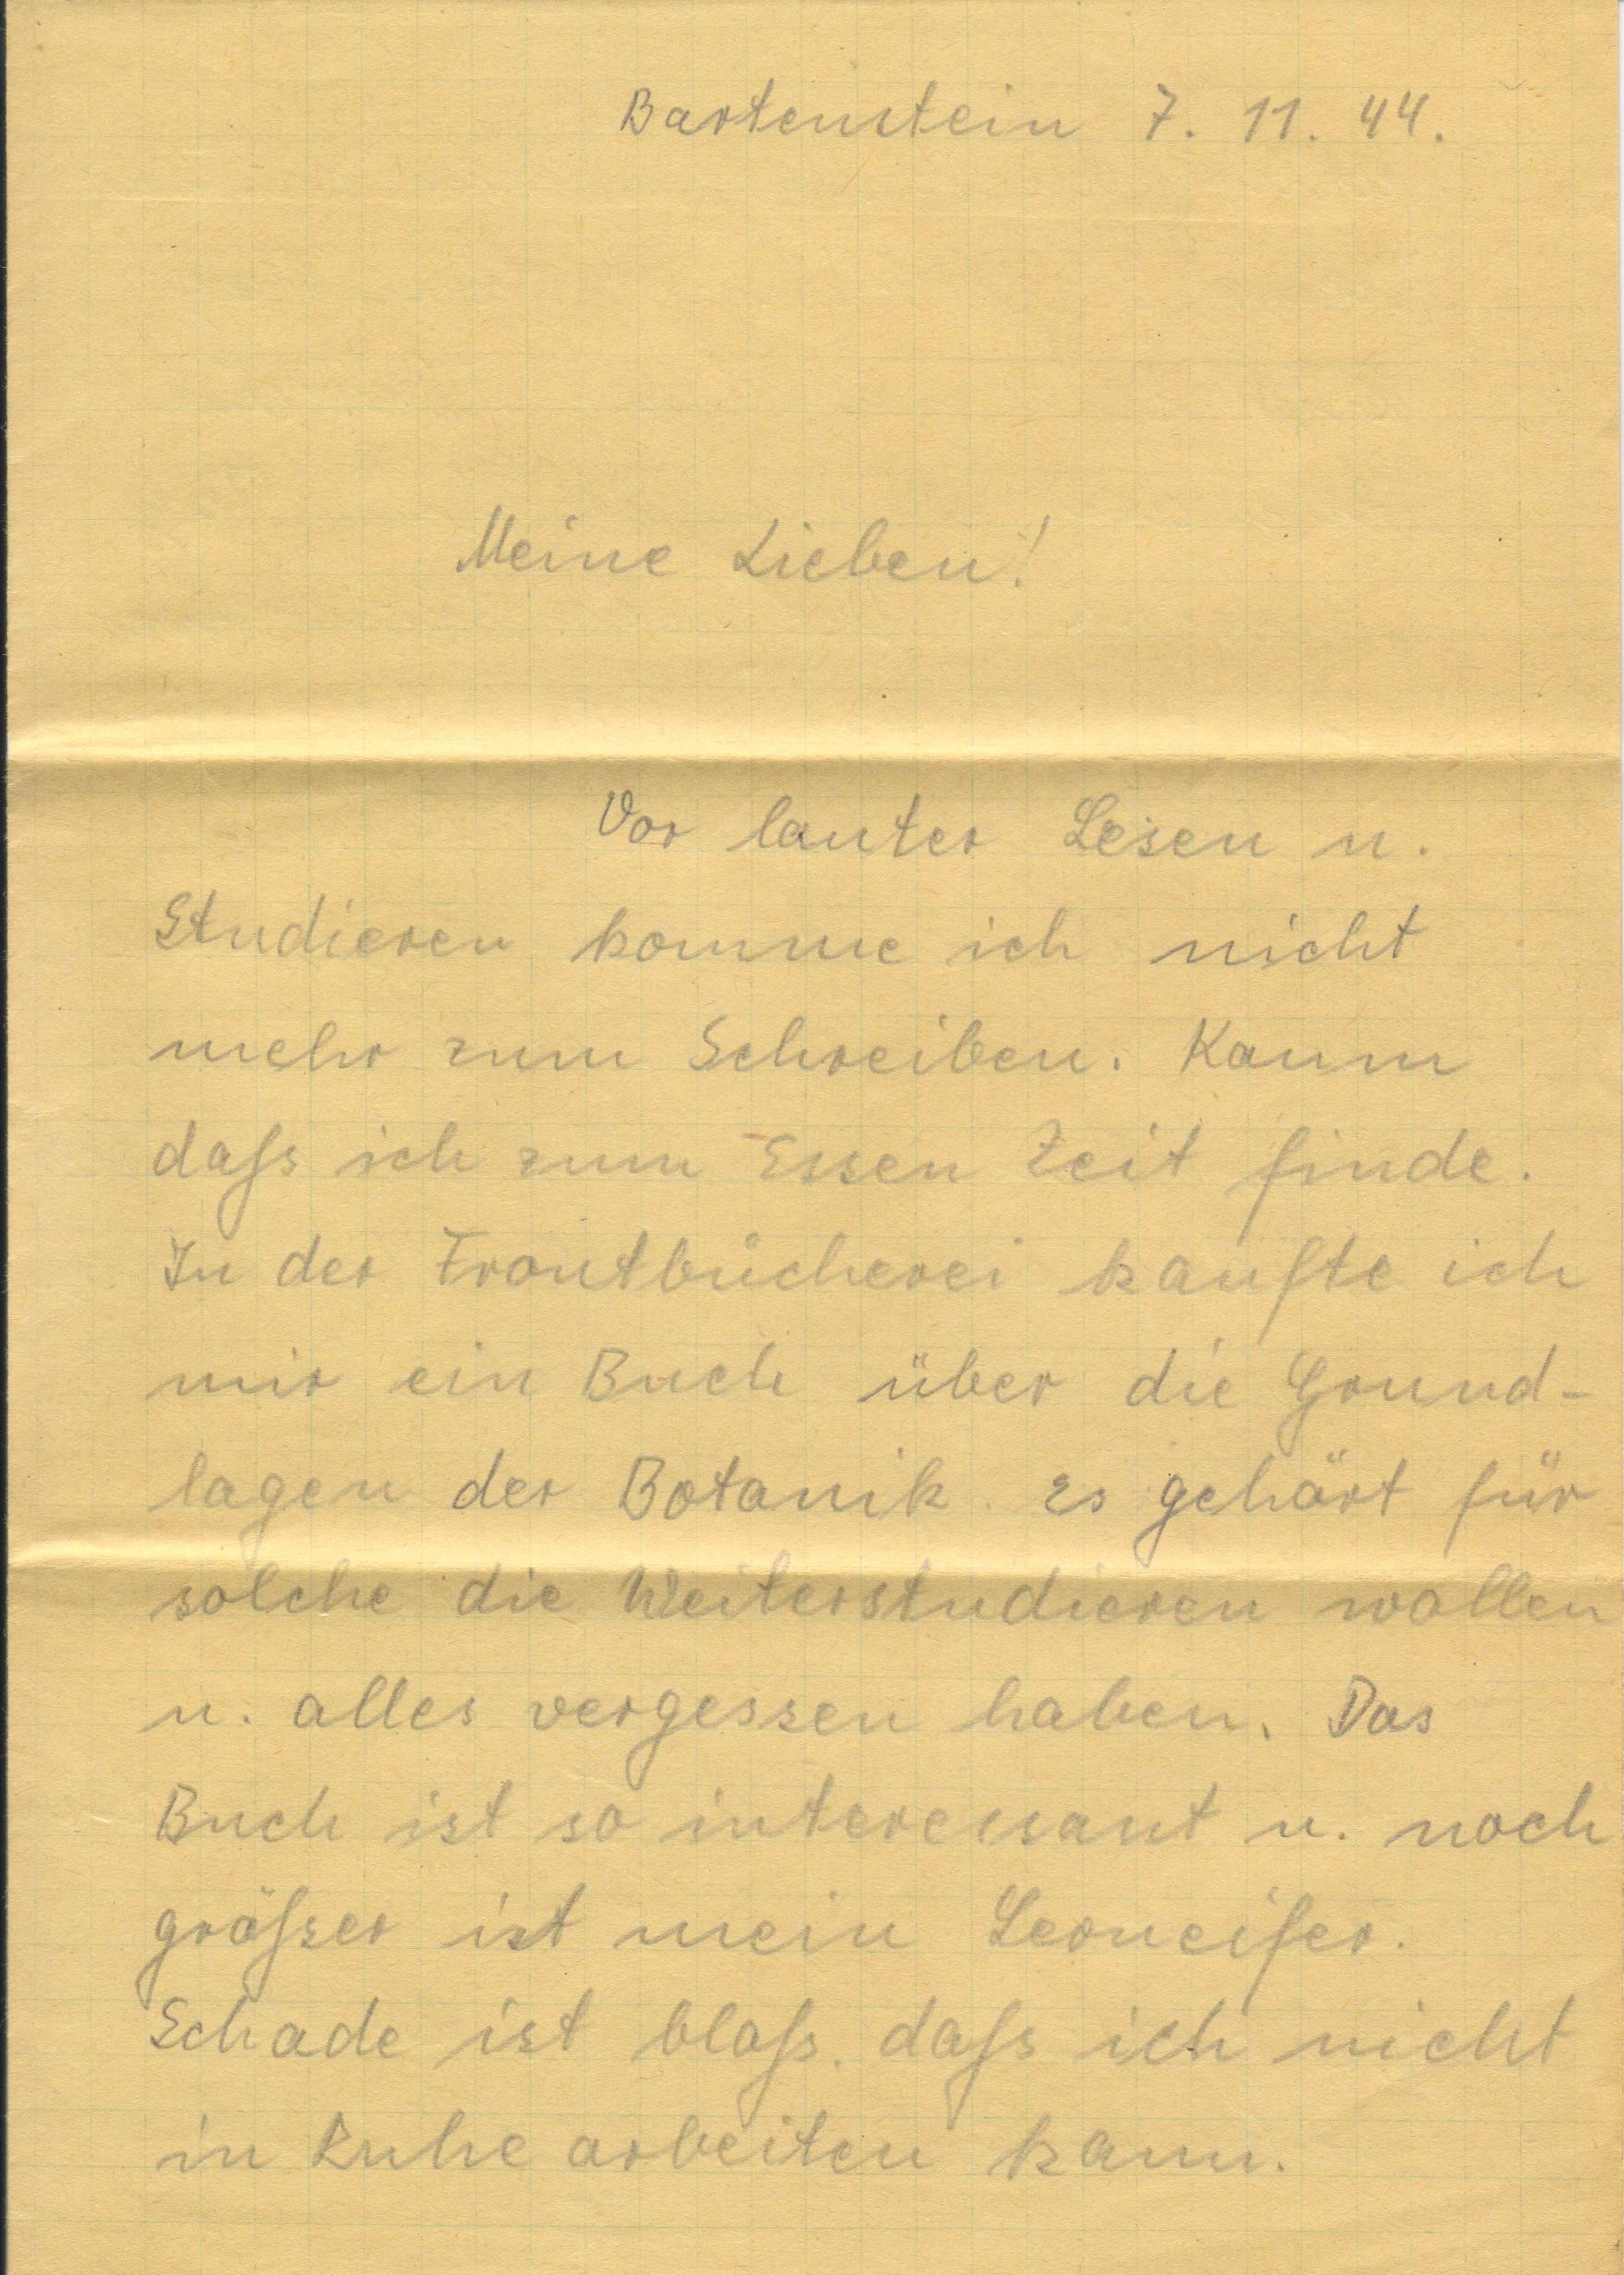 Bartenstein 7. 11. 44.
Meine Lieben!
Vor lauter Lesen u.
Studieren komme ich nicht
mehr zum Schreiben. Kaum
daß ich zum Essen Zeit finde.
In der Frontbücherei kaufte ich
mir ein Buch über die Grund-
lagen der Botanik. Es gehört für
solche die Weiterstudieren wollen
u. alles vergessen haben. Das
Buch ist so interessant u. noch
größer ist mein Lerneifer.
Schade ist bloß, daß ich nicht
in Ruhe arbeiten kann.